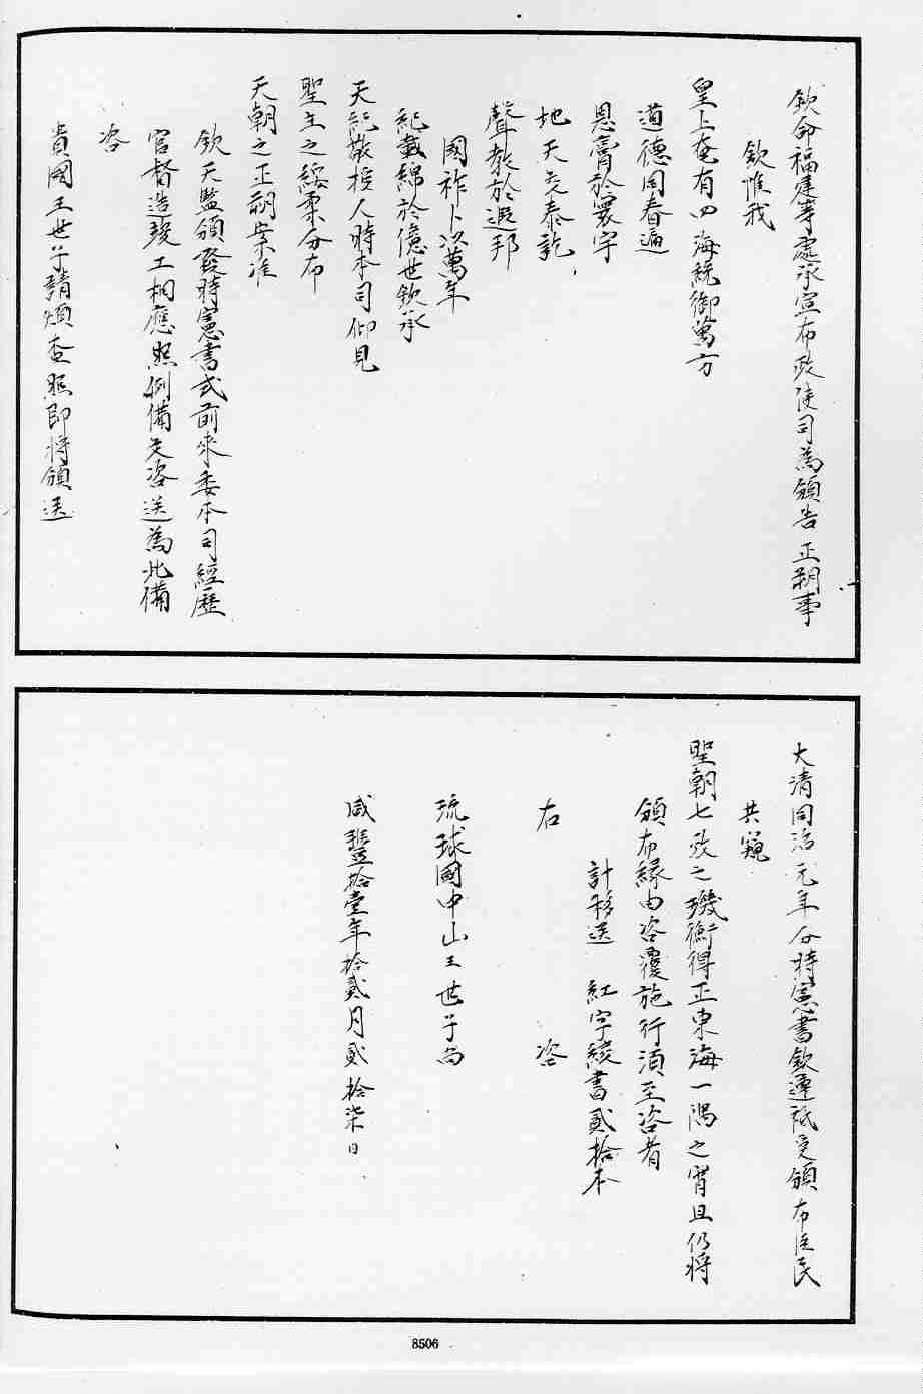 欽命福建等處承宣布政使司為頒告正朔事
欽惟我
皇上奄有四海統御萬方
道德同春遍
恩膏於寰宇
地天交泰訖
聲教於遐邦
國祚卜以萬年
紀載綿於億世欽承
天紀敬授人時本司仰見
聖主之綏柔分布
天朝之正朔案准
欽天監頒發時憲書式前來委本司經歷
官督造竣工相應照例備文咨送為此備
咨
貴國王世子請煩查照即將頒送
大清同治元年分時憲書欽遵祗受頒布臣民
共窺
聖朝七政之璣衡得正東海一隅之宵旦仍將
頒布緣由咨覆施行須至咨者
計移送 紅字綾書貳拾本
右 咨
琉球國中山王世子尚
咸豐拾壹年拾貳月貳拾柒日
8506